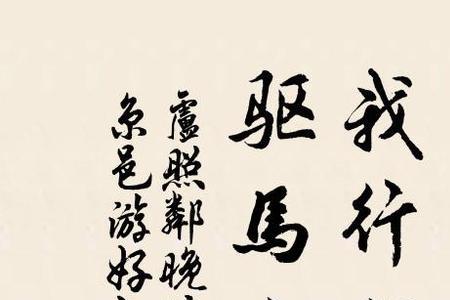 我行
驱馬
盧照鄰晚
京邑游好